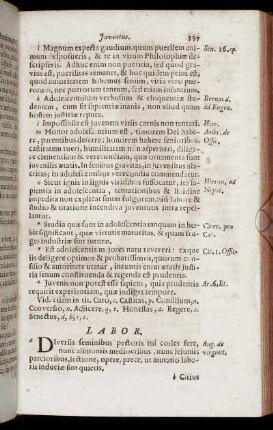 Juventus. 397
i Magnum expecta gaudium, quum puerilem ani- Sen. 16. ep.
mum deposueris, & te in virum Philosophia
descripseris. Adhuc enim non pueritia, sed quod gra-
vius est, puerilitas remanet, & hoc quidem pejus est,
quod autoritatem habemus senum, vitia vero pue-
rorum, nec puerorum tantum, sed etiam infantum.
k Adolescentulum verbosum & eloquentiæ stu- Bernard.
dentem, cum sit sapientiæ inanis, non aliud quam ad Eugen.
hostem justitiæ reputa.
l Impossibile est juvenem virilis carnis non tentari. Hier.
m Honor adolescentium est, timorem Dei habe- Ambr. de
re, parentibus deferre: honorem habere senioribus: Offic.
castitatem tueri, humilitatem non aspernari, dilige-
re clementiam & verecundiam, quæ ornamento sunt
juvenilis ætatis, In senibus gravitas, in juvenibus ala-
critas; in adolescentibus verecundia commendatur.
n Sicut ignis in lignis viridibus suffocatur, ita sa- Hieron. ad
pientia in adolescentia, tentationibus & Nepot.
impedita non explicat suum fulgorem: nisi labore &
studio & oratione incendiva juventutis intra repel-
lantur.
o Studia quæ sunt in adolescentia tanquam in her- Cicer. pro
bis significant, quæ virtutis maturitas, & quam fru- Cæl.
ges industriæ sint futuræ.
p Est adolescentis majores natu revereri: exque Cic. 1. Offic.
iis deligere optimos & probatissimos, quorum con-
silio & autoritate utatur, ineuntis enim ætatis
scitia senum constituenda & regenda est prudentia.
q Juvenis non potest esse sapiens, quia prudentia Ar. 6. Et.
requirit experientiam, quæ indiget tempore.
Vid. etiam in tit. Caro, c. Castitas, p. Consilium,
Converso, n. Adjicere, q, r. Honestas, a. Regere, s.
Senectus, d, b, r, t.
LABOR.
a Diversis seminibus pectoris tui colles sere, Aug. de
nunc alimoniis mediocribus, nunc jejuniis virginit.
parcioribus, lectione, opere, prece, ut mutatio labo-
ris induciæ sint quietis.
b Citius